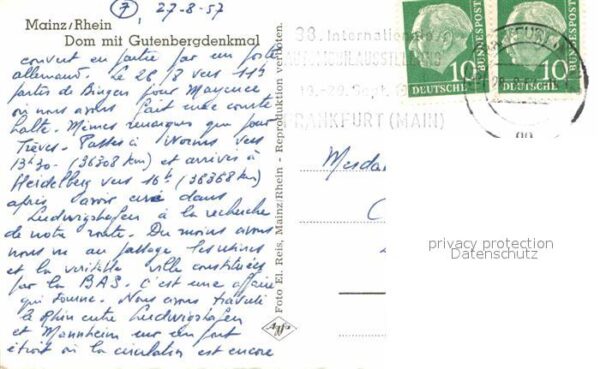 7, 27-8-57
Mainz/Rhein
Dom mit Gutenbergdenkmal
couvert en partie par un poste
allemand. Le 26/8 vers 11h
partes de Bingen pour Mayence
où nous avons fait une courte
halte. Mêmes remarques que pour
Trèves. Passés à Worms vers
13h30 (36308 km) et arrivés à
Heidelberg vers 16h (36368 km)
après avoir erré dans
Ludwigshafen à la recherche
de notre route. Du moins avons
nous vu au passage les usines
et la véritable ville constituées
par la BAS. C'est une affaire
qui tourne. Nous avons traversé
le Rhin entre Ludwigshafen
et Mannheim sur un pont
étroit où la circulation est encore
Foto El. Reis, Mainz/Rhein - Reproduktion verboten.
38. Internationale
AUTOMOBILAUSSTELLUNG
19.-29. Sept.
FRANKFURT (MAIN)
10
DEUTSCHE
BUNDESPOST
10
DEUTSCHE
BUNDESPOST
Mesda
privacy protection
Datenschutz